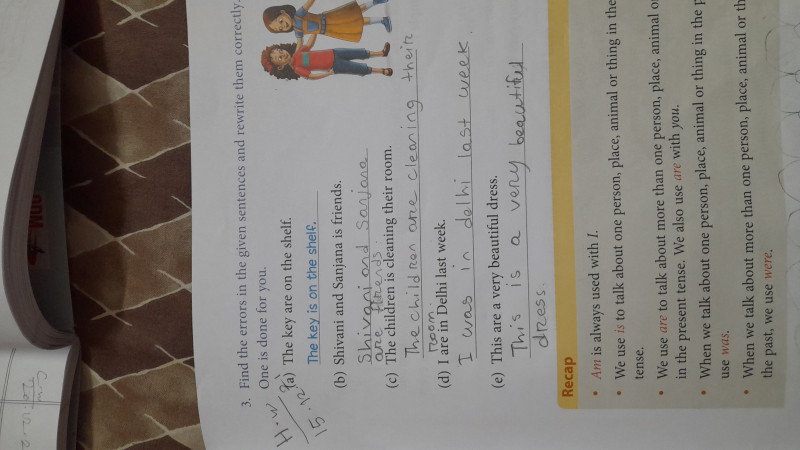 3. Find the errors in the given sentences and rewrite them correctly.
One is done for you.
H.W
15.12
(a) The key are on the shelf.
The key is on the shelf.
(b) Shivani and Sanjana is friends.
Shivani and Sanjana
are friends.
(c) The children is cleaning their room.
The children are cleaning their
room.
(d) I are in Delhi last week.
I was in delhi last week.
(e) This are a very beautiful dress.
This is a very beautiful
dress.
Recap
• Am is always used with I.
• We use is to talk about one person, place, animal or thing in the
tense.
• We use are to talk about more than one person, place, animal or
in the present tense. We also use are with you.
• When we talk about one person, place, animal or thing in the
use was.
• When we talk about more than one person, place, animal or th
the past, we use were.